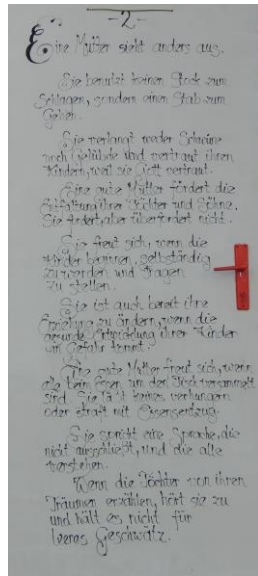 -2-
Eine Mutter sieht anders aus.
Sie benutzt keinen Stock zum
Schlagen, sondern einen Stab zum
Gehen.
Sie verlangt weder Schwüre
noch Gelübde und vertraut ihren
Kindern, weil sie Gott vertraut.
Eine gute Mutter fördert die
Entfaltung ihrer Töchter und Söhne.
Sie fordert, aber überfordert nicht.
Sie freut sich, wenn die
Kinder beginnen, selbständig
zu werden und Fragen
zu stellen.
Sie ist auch bereit ihre
Erziehung zu ändern, wenn die
gesunde Entwicklung ihrer Kinder
in Gefahr kommt.
Die gute Mutter freut sich, wenn
alle beim Essen um den Tisch versammelt
sind. Sie läßt keines verhungern
oder straft mit Essensentzug.
Sie spricht eine Sprache, die
nicht ausschließt, und die alle
verstehen.
Wenn die Töchter von ihren
Träumen erzählen, hört sie zu
und hält es nicht für
leeres Geschwätz.